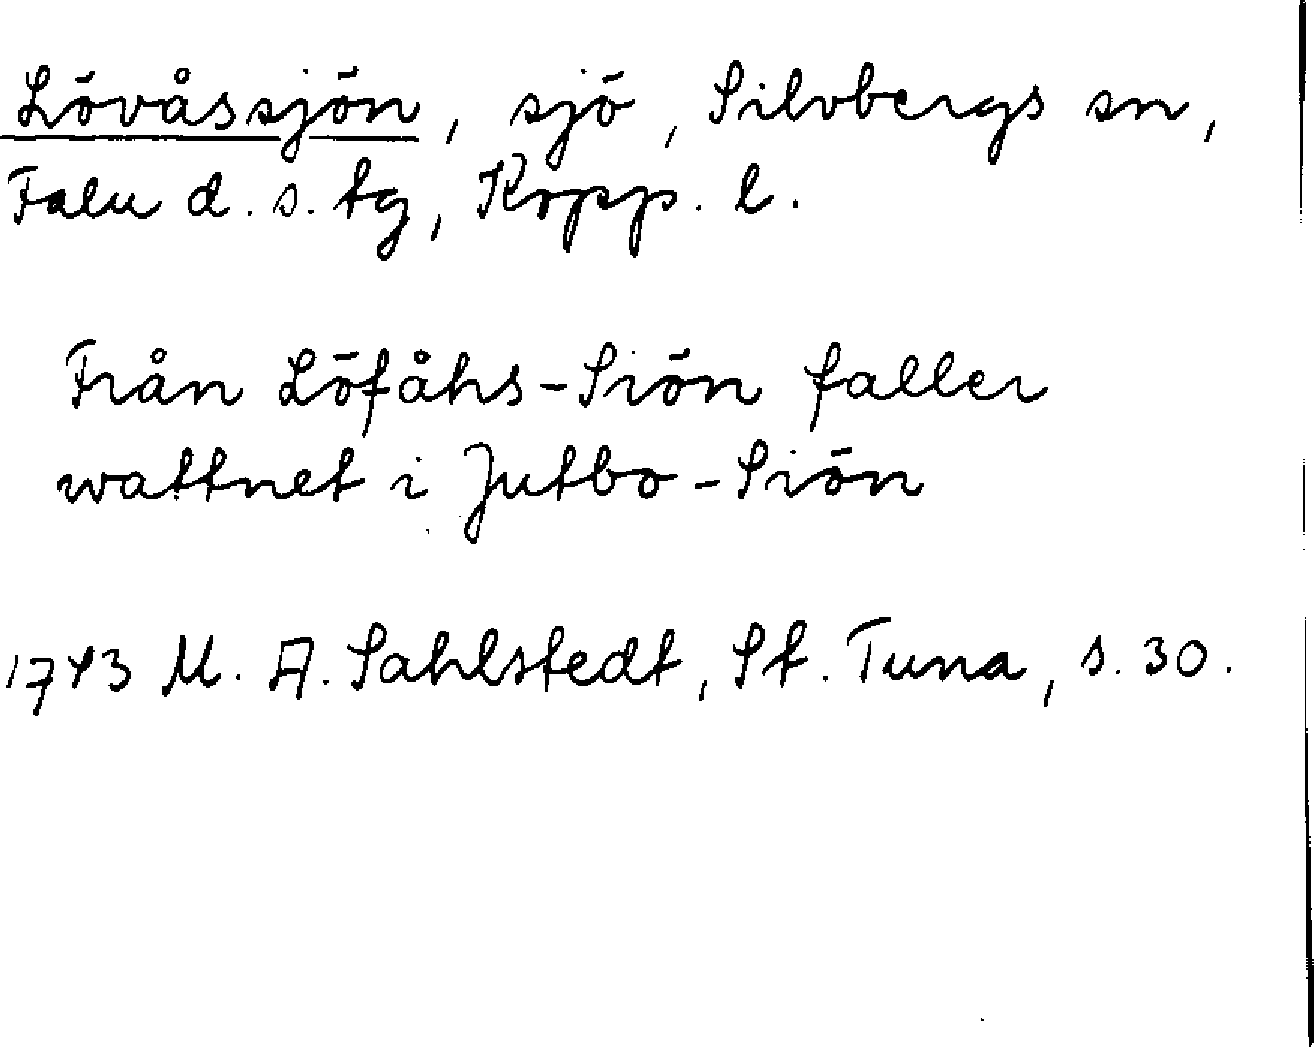 Lövåssjön, sjö, Silvbergs sn,
Falu d. s. tg, Kopp. l.
Från Löfåhs-Siön faller
wattnet i Jutbo-Siön
1743 M. A. Sahlstedt, St. Tuna, s. 30.